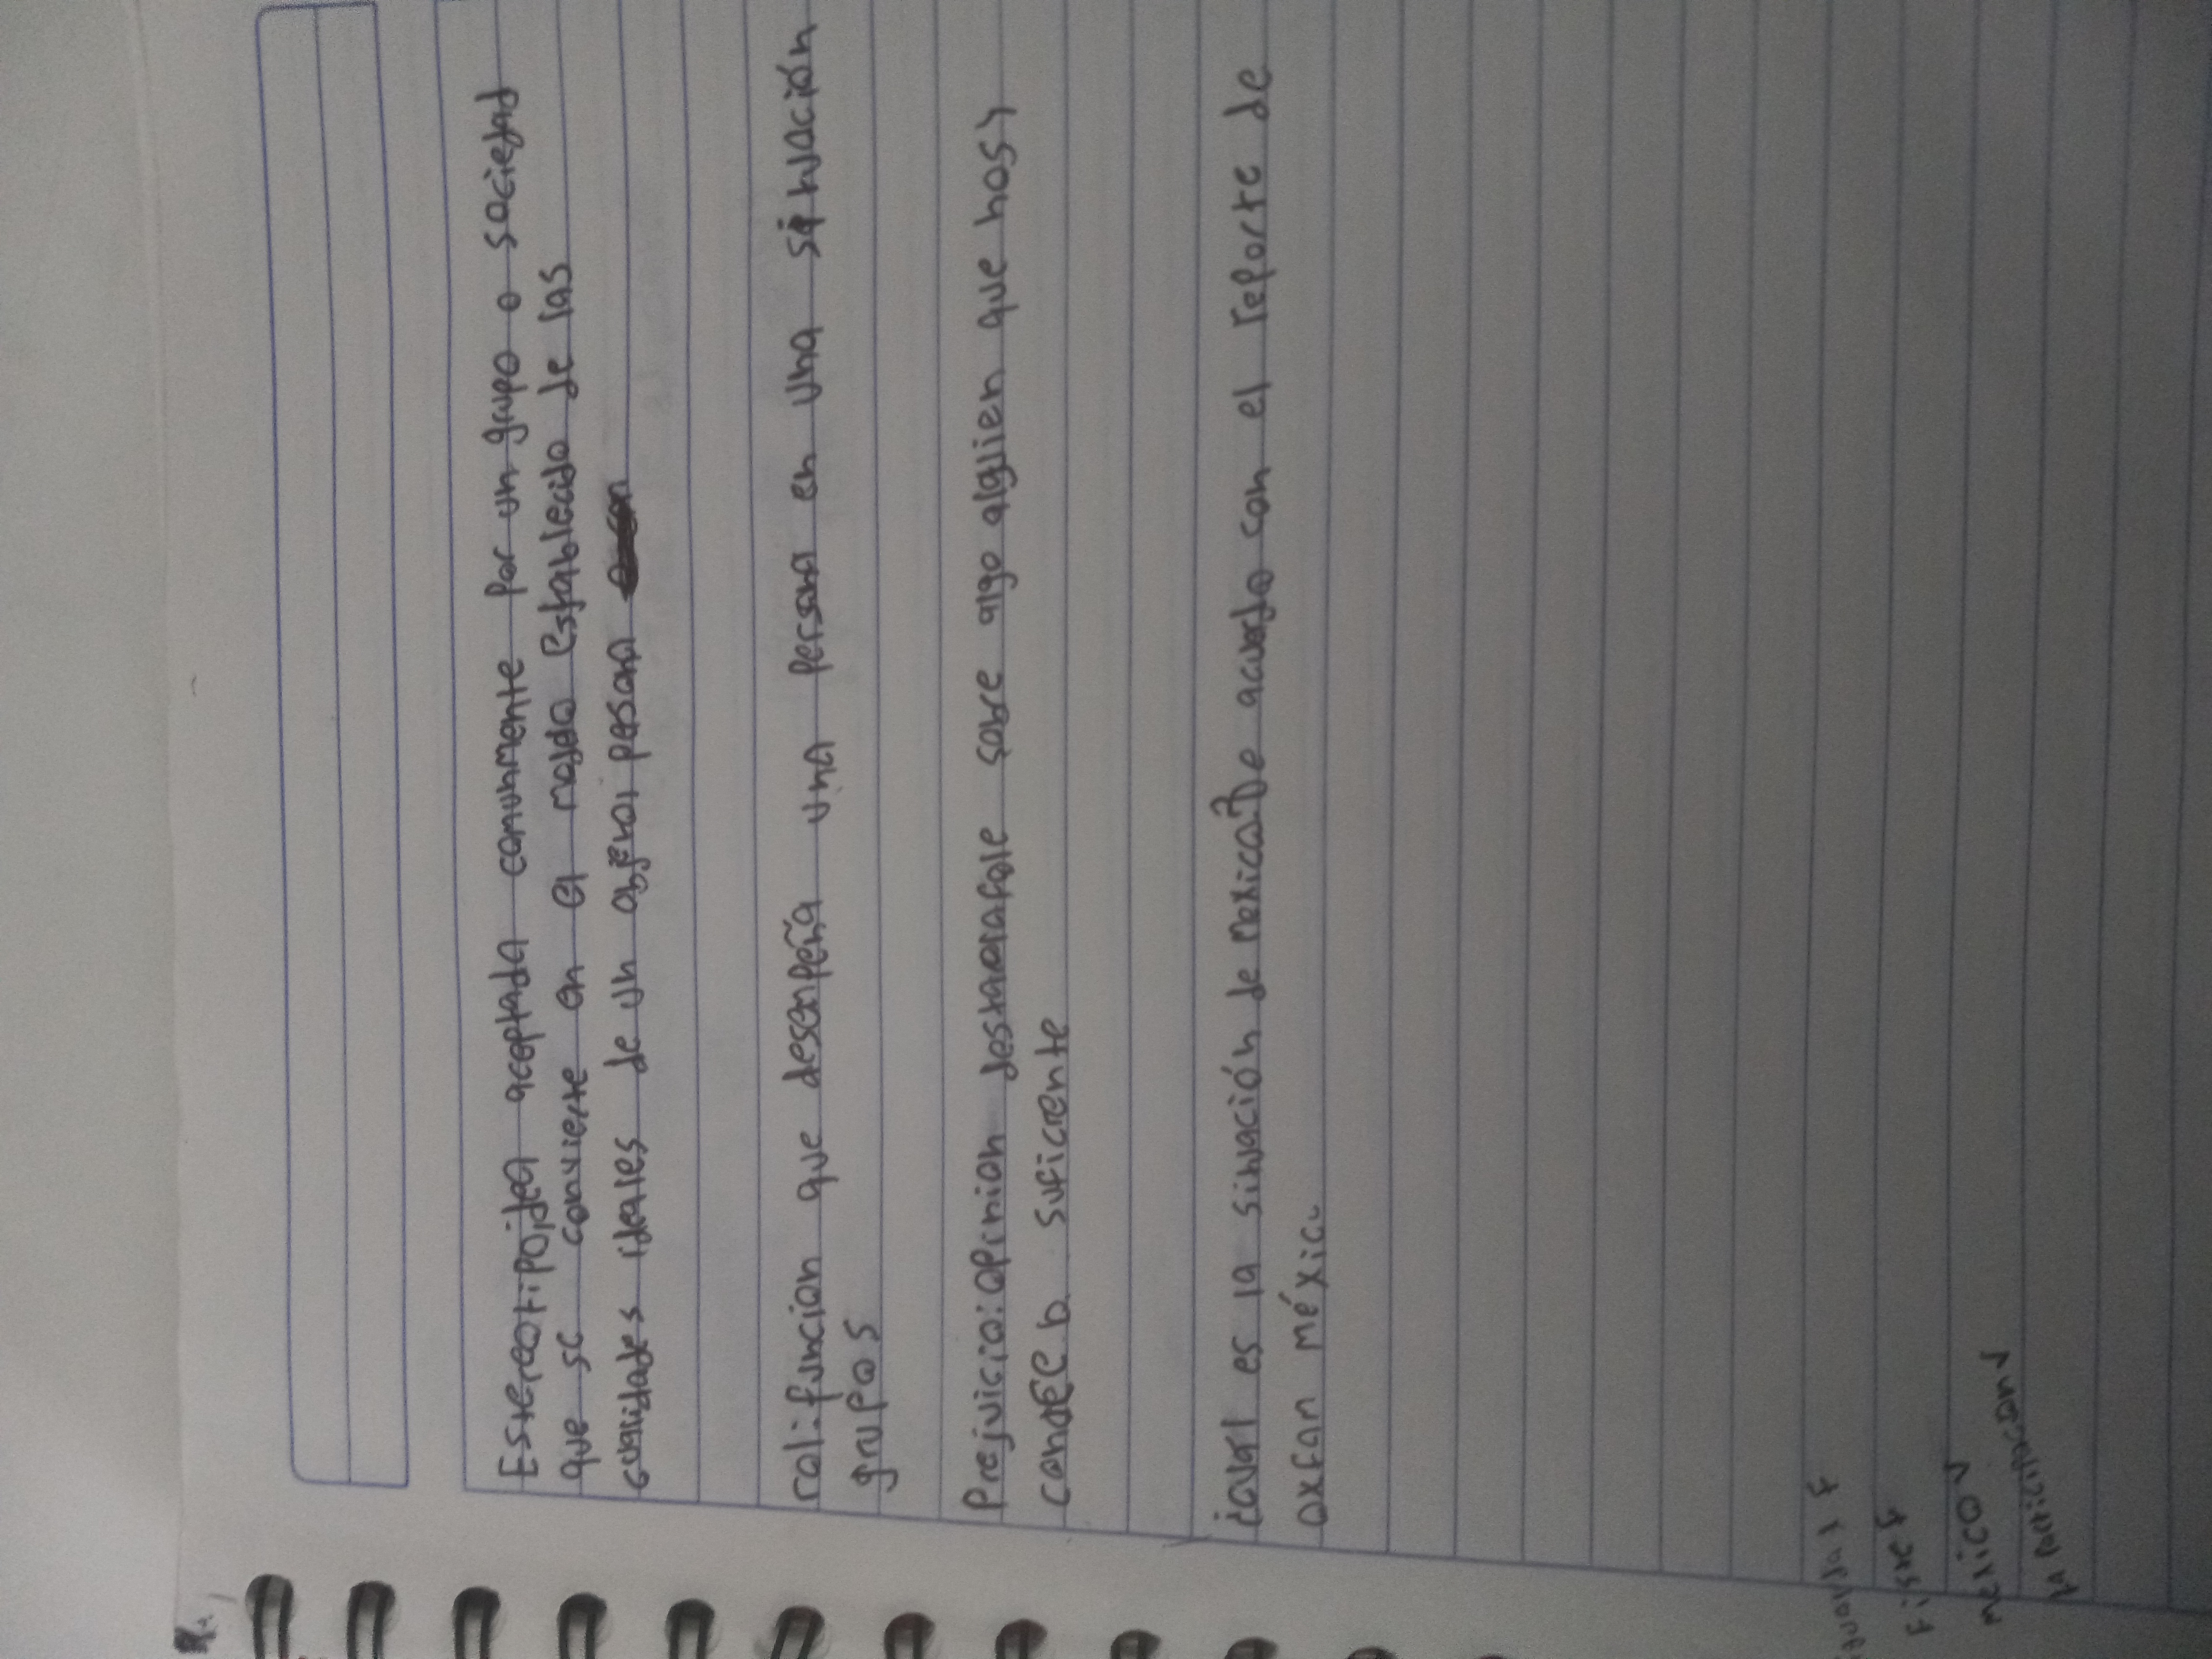 Estereotipo:idea aceptada comunmente por un grupo o sociedad
que se convierte en el modo establecido de las
cualidades ideales de un objeto persona
rol: funcion que desempeña una persona en una situación
grupos
Prejuicio: opinion sobre algo alguien que
suficiente
¿cual es la situación de mexico? De acuerdo con el reporte de
oxfan méxico
F
Fisica F
mexico V
la participacion V